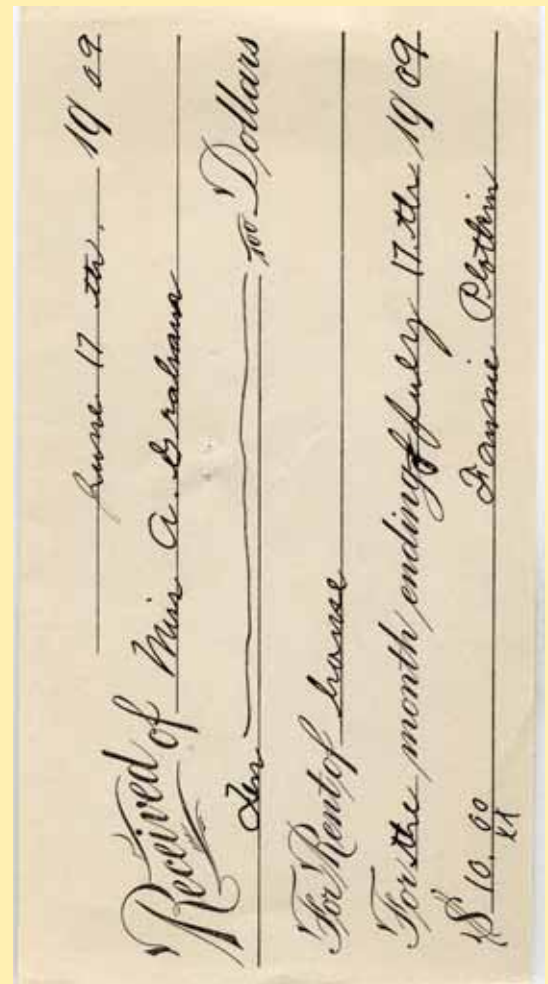 June 17 th, 1909
Received of Miss A. Graham
Ten /100 Dollars
For Rent of house
For the month ending July 17 th 1909
$ 10.00 Fannie Plotkin